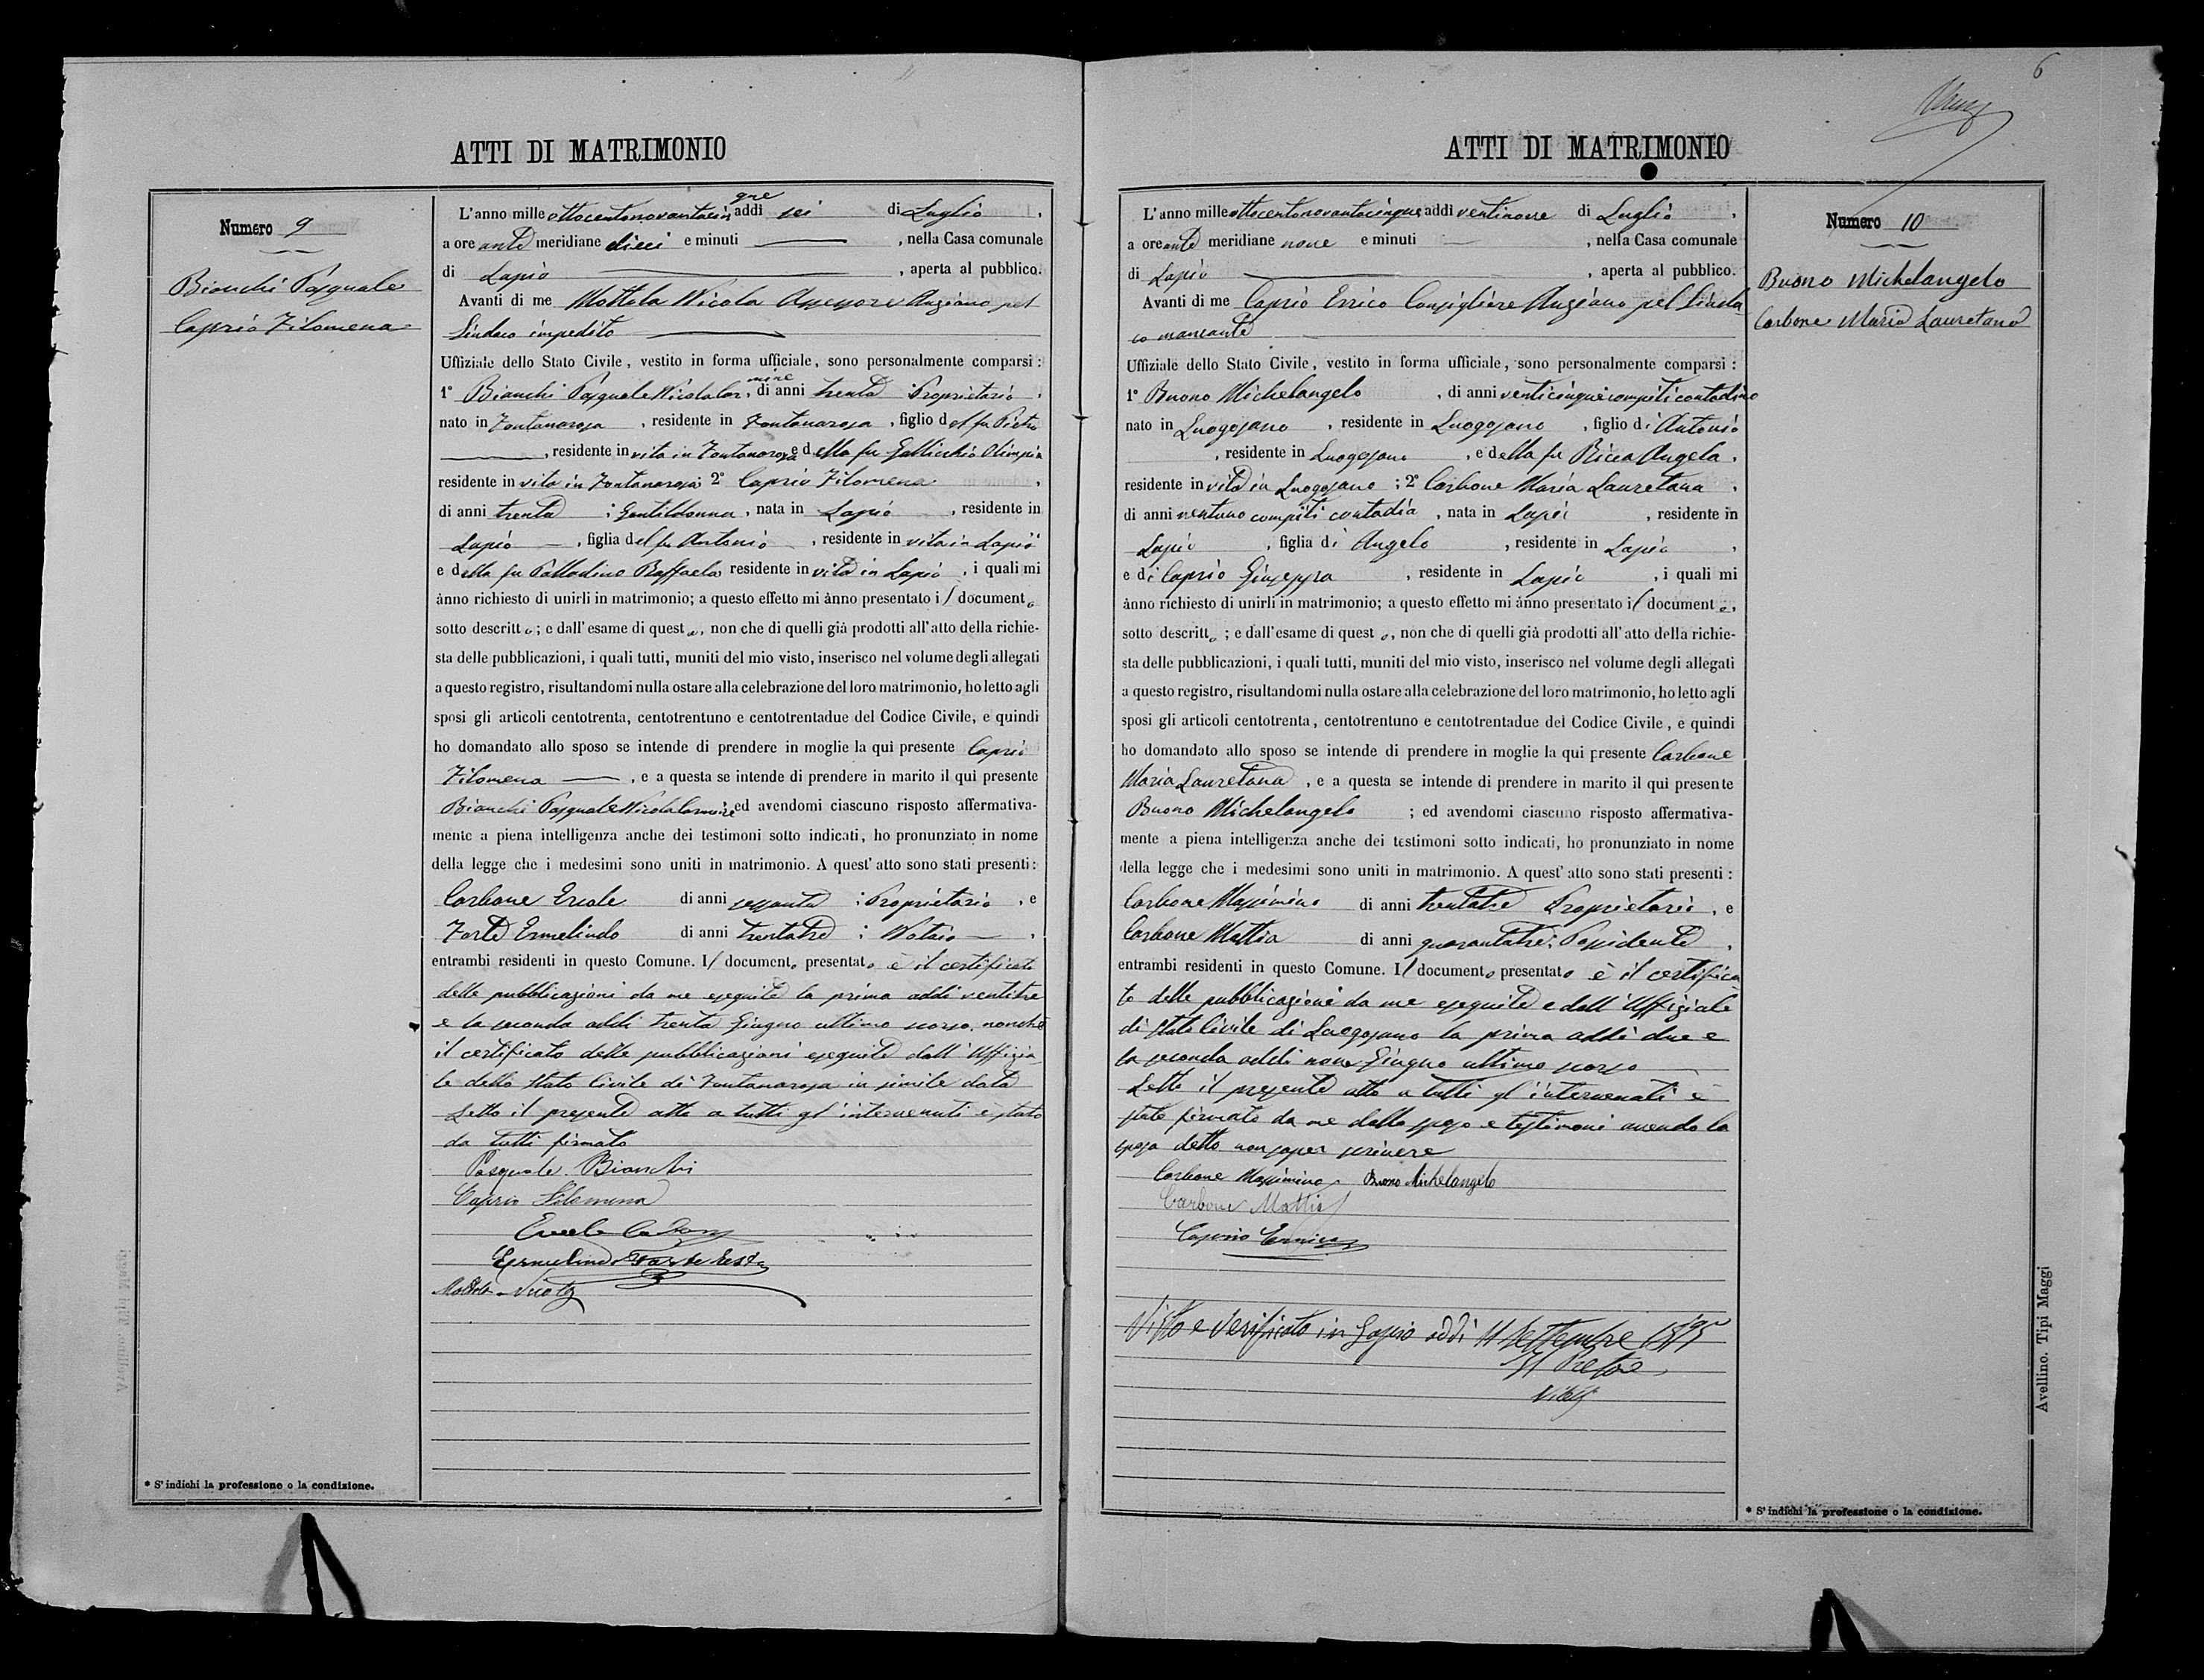 ATTI DI MATRIMONIO
Numero 9
Bianchi Pasquale
Caprio Filomena
L'anno mille ottocentonovantacinque addì sei di Luglio,
a ore ante meridiane dieci e minuti , nella Casa comunale
di Lapio , aperta al pubblico.
Avanti di me Mottola Nicola Assessore Anziano pel
Sindaco impedito
Uffiziale dello Stato Civile, vestito in forma ufficiale, sono personalmente comparsi:
1° Bianchi Pasquale Nicola Carmine, di anni trenta Proprietario,
nato in Fontanarosa, residente in Fontanarosa, figlio del fu Pietro
, residente in vita in Fontanarosa e della fu Gallicchio Olimpia
residente in vita in Fontanarosa 2° Caprio Filomena,
di anni trenta; Gentildonna, nata in Lapio, residente in
Lapio, figlia del fu Antonio, residente in vita in Lapio
e della fu Palladino Raffaela residente in vita in Lapio, i quali mi
ànno richiesto di unirli in matrimonio; a questo effetto mi ànno presentato il documento
sotto descritto; e dall'esame di questo, non che di quelli già prodotti all'atto della richie-
sta delle pubblicazioni, i quali tutti, muniti del mio visto, inserisco nel volume degli allegati
a questo registro, risultandomi nulla ostare alla celebrazione del loro matrimonio, ho letto agli
sposi gli articoli centotrenta, centotrentuno e centotrentadue del Codice Civile, e quindi
ho domandato allo sposo se intende di prendere in moglie la qui presente Caprio
Filomena, e a questa se intende di prendere in marito il qui presente
Bianchi Pasquale Nicola Carmine ed avendomi ciascuno risposto affermativa-
mente a piena intelligenza anche dei testimoni sotto indicati, ho pronunziato in nome
della legge che i medesimi sono uniti in matrimonio. A quest'atto sono stati presenti:
Carbone Ercole di anni sessanta; Proprietario, e
Forte Ermelindo di anni trentatre; Notaio,
entrambi residenti in questo Comune. Il documento presentato è il certificato
delle pubblicazioni da me eseguite la prima addì ventitre
e la seconda addì trenta Giugno ultimo scorso, nonchè
il certificato delle pubblicazioni eseguite dall'Uffizia
le dello Stato Civile di Fontanarosa in simile data
Letto il presente atto a tutti gl'intervenuti è stato
da tutti firmato
Pasquale Bianchi
Caprio Filomena
Ercole Carbone
Ermelindo Forte
Mottola Nicola
* S'indichi la professione o la condizione.
6
ATTI DI MATRIMONIO
Numero 10
Buono Michelangelo
Carbone Maria Lauretana
L'anno mille ottocentonovantacinque addì ventinove di Luglio,
a ore ante meridiane nove e minuti , nella Casa comunale
di Lapio , aperta al pubblico.
Avanti di me Caprio Errico Consigliere Anziano pel Sinda
co mancante
Uffiziale dello Stato Civile, vestito in forma ufficiale, sono personalmente comparsi:
1° Buono Michelangelo, di anni venticinque compiti contadino
nato in Luogosano, residente in Luogosano, figlio di Antonio
, residente in Luogosano, e della fu Ricca Angela,
residente in vita in Luogosano; 2° Carbone Maria Lauretana,
di anni ventuno compiti contadia, nata in Lapio, residente in
Lapio, figlia di Angelo, residente in Lapio,
e di Caprio Giuseppa, residente in Lapio, i quali mi
ànno richiesto di unirli in matrimonio; a questo effetto mi ànno presentato il documento,
sotto descritto; e dall'esame di questo, non che di quelli già prodotti all'atto della richie-
sta delle pubblicazioni, i quali tutti, muniti del mio visto, inserisco nel volume degli allegati
a questo registro, risultandomi nulla ostare alla celebrazione del loro matrimonio, ho letto agli
sposi gli articoli centotrenta, centotrentuno e centotrentadue del Codice Civile, e quindi
ho domandato allo sposo se intende di prendere in moglie la qui presente Carbone
Maria Lauretana, e a questa se intende di prendere in marito il qui presente
Buono Michelangelo; ed avendomi ciascuno risposto affermativa-
mente a piena intelligenza anche dei testimoni sotto indicati, ho pronunziato in nome
della legge che i medesimi sono uniti in matrimonio. A quest'atto sono stati presenti:
Carbone Massimino di anni trentatre Proprietario, e
Carbone Mattia di anni quarantatre; Possidente,
entrambi residenti in questo Comune. Il documento presentato è il certifica
to delle pubblicazioni da me eseguite e dall'Uffiziale
di Stato Civile di Luogosano la prima addì due e
la seconda addì nove Giugno ultimo scorso
Letto il presente atto a tutti gl'intervenuti è
stato firmato da me dallo sposo e testimoni avendo la
sposa detto non saper scrivere
Carbone Massimino Buono Michelangelo
Carbone Mattia
Caprio Errico
Visto e verificato in Lapio addì 11 Settembre 1895
Il Pretore
* S'indichi la professione o la condizione.
Avellino. Tipi Maggi